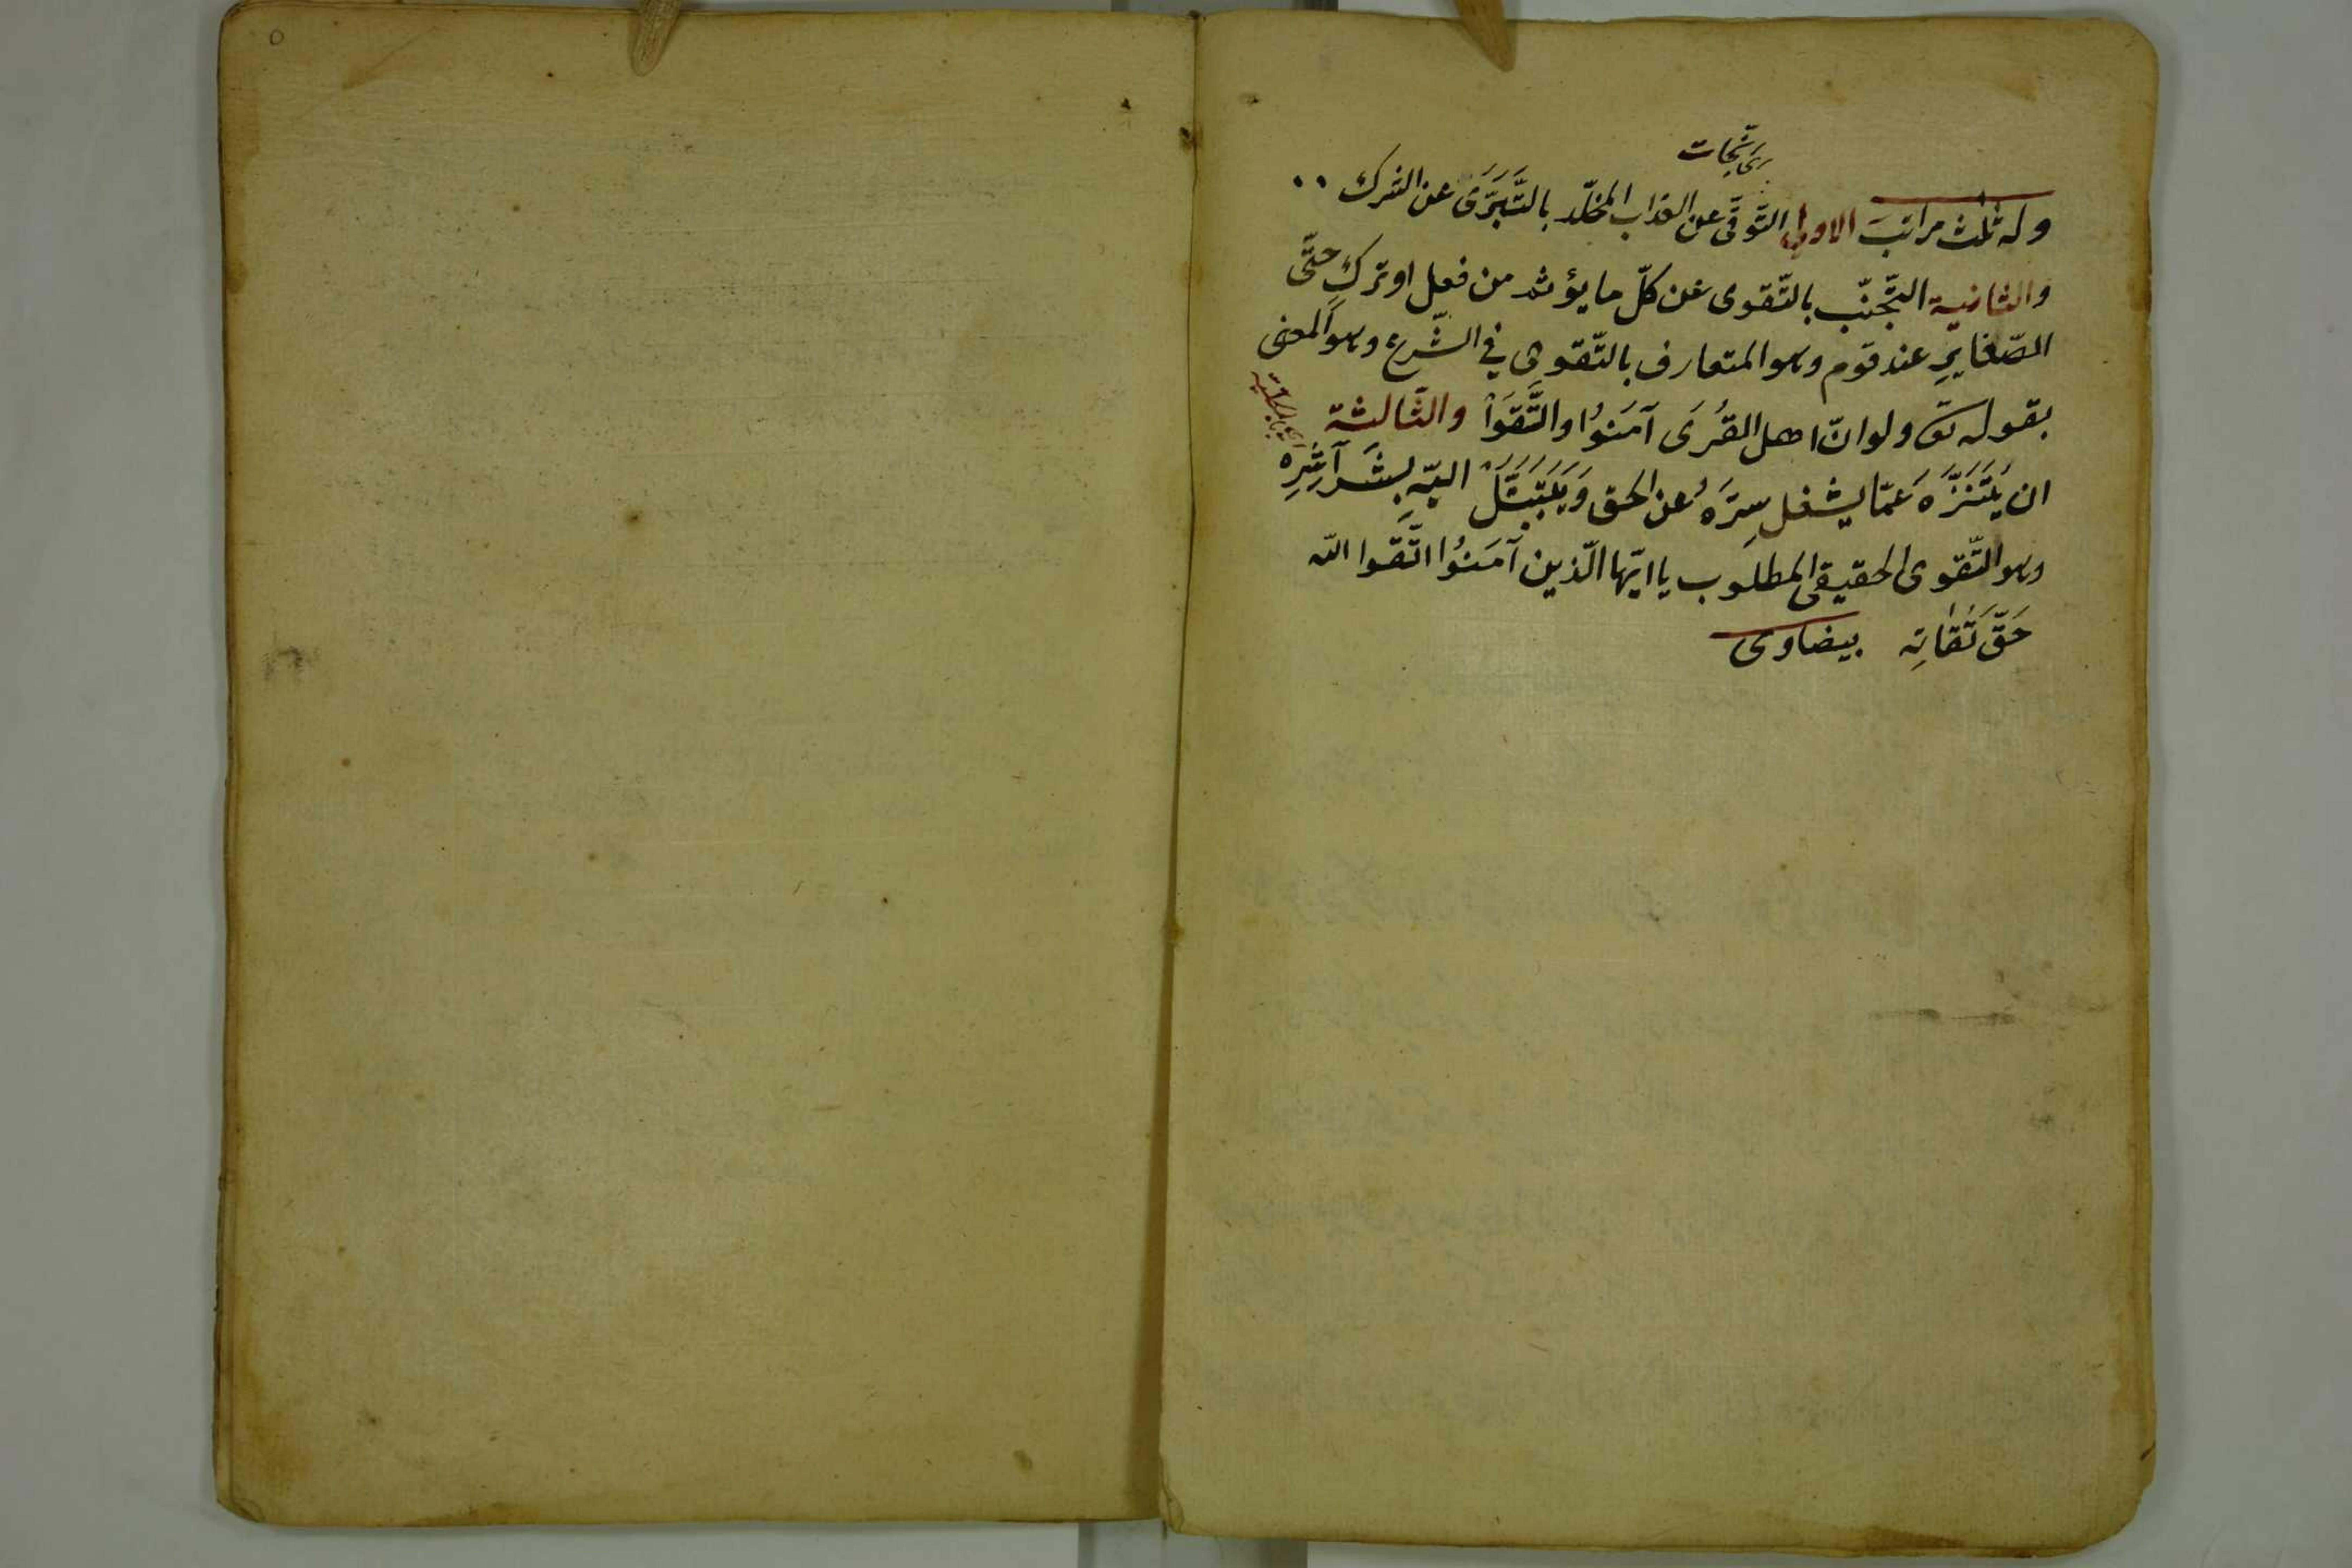 ای نجات
وله ثلث مراتب الاولی التَّوقَّی عن العذاب المخلّد بالتَّبَرَّی عن الشرك
والثانیة التّجنّب بالتّقوی عن كلّ ما یؤثم من فعل او تركٍ حتّی
الصّغایرِ عند قوم وهو المتعارف بالتّقوی فی الشّرع وهو المعنی
بقوله تعَ ولو انّ اهل القُرَی آمَنوُا والتَّقَوْا والثّالثة
ان یُتَنَزَّهَ عَمّا یشغل سِرَّهُ عن الحق وَیَتَبَتَّلَ الیّهِ بِشَرآشِرِه
ای بالكلیة
وهو التّقوی الحقیقی المطلوب یا ایّها الّذین آمَنوُا اتَّقوا اللّه
حَقّ تَقُاتِه بیضاوی